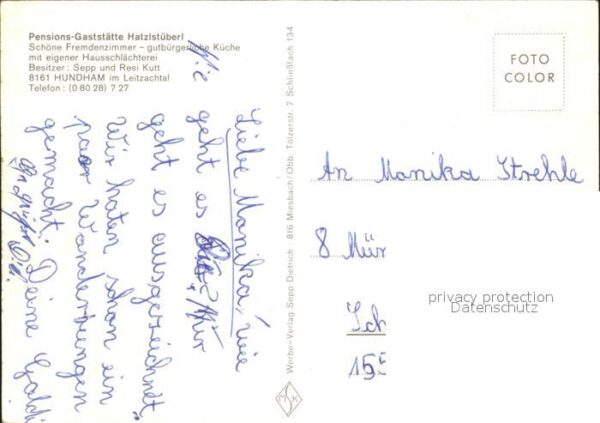 Pensions-Gaststätte Hatzlstüberl
Schöne Fremdenzimmer – gutbürgerliche Küche
mit eigener Hausschlächterei
Besitzer: Sepp und Resi Kutt
8161 HUNDHAM im Leitzachtal
Telefon: (0 80 28) 7 27
Liebe Monika, wie
geht es Mir
geht es ausgezeichnet.
Wir haben schon ein
paar Wanderungen
gemacht. Deine Gabi
Werbe-Verlag Sepp Dietrich · 816 Miesbach/Obb. Tölzerstr. 7 Schließfach 134
FOTO
COLOR
An Monika Strehle
8 Mün
privacy protection
Datenschutz